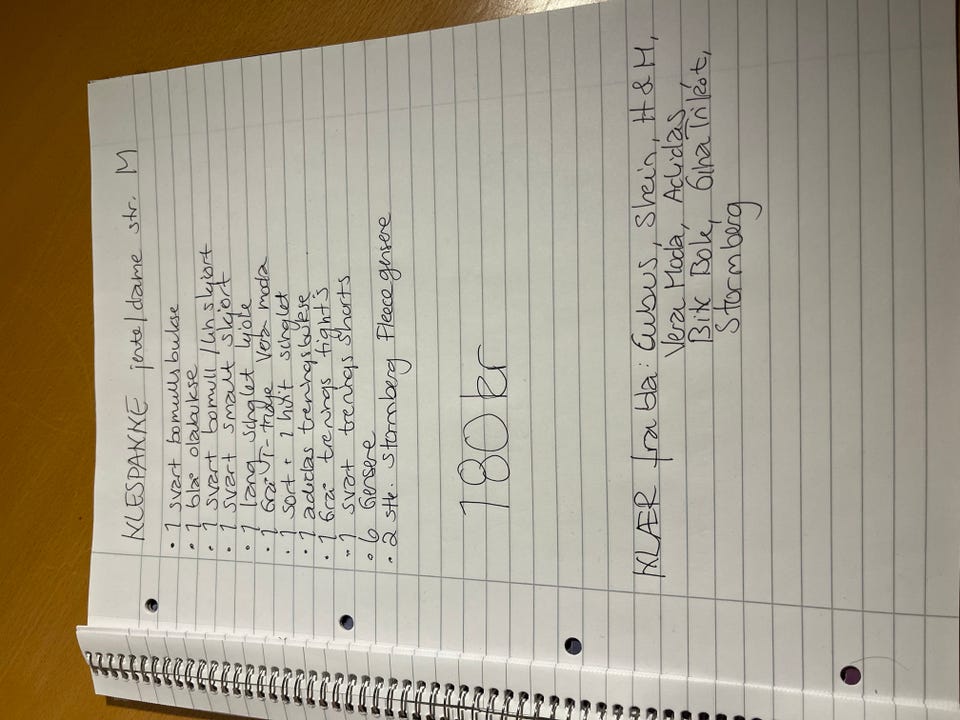 KLESPAKKE jente/dame str. M
• 1 svart bomullsbukse
• 1 blå olabukse
• 1 svart bomull/lin skjørt
• 1 svart smalt skjørt
• 1 lang singlet kjole
• 1 Grå V-trøye Vera moda
• 1 sort + 1 hvit singlet
• 1 adidas treningsbukse
• 1 Grå trenings tight's
• 1 svart trenings shorts
• 6 Gensere
• 2 stk. stormberg Fleecegensere
180 kr
KLÆR fra bla: Cubus, Shein, H & M,
Vera Moda, Adidas,
Bik Bok, Gina Trikot,
Stormberg